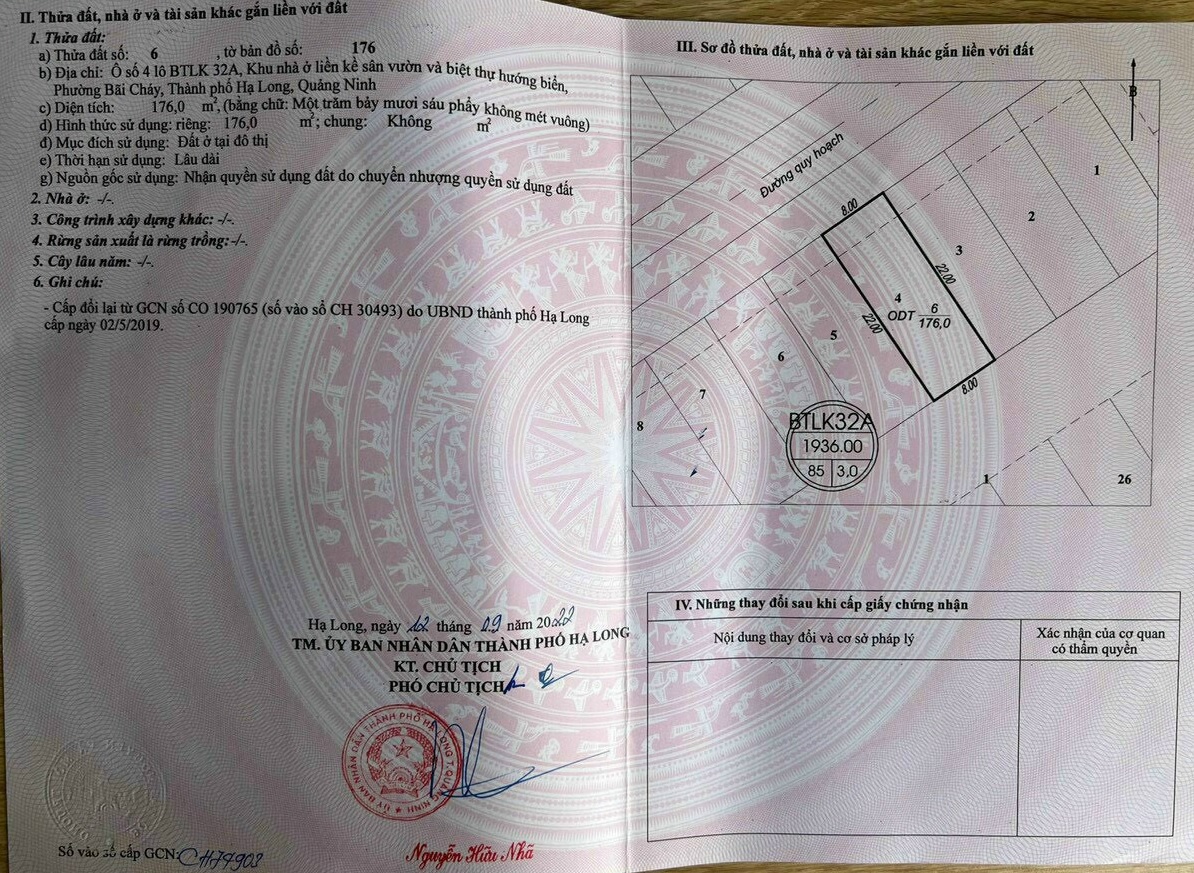 II. Thửa đất, nhà ở và tài sản khác gắn liền với đất
1. Thửa đất:
a) Thửa đất số: 6 , tờ bản đồ số: 176
b) Địa chỉ: Ô số 4 lô BTLK 32A, Khu nhà ở liền kề sân vườn và biệt thự hướng biển,
Phường Bãi Cháy, Thành phố Hạ Long, Quảng Ninh
c) Diện tích: 176,0 m², (bằng chữ: Một trăm bảy mươi sáu phẩy không mét vuông)
d) Hình thức sử dụng: riêng: 176,0 m²; chung: Không m²
đ) Mục đích sử dụng: Đất ở tại đô thị
e) Thời hạn sử dụng: Lâu dài
g) Nguồn gốc sử dụng: Nhận quyền sử dụng đất do chuyển nhượng quyền sử dụng đất
2. Nhà ở: -/-.
3. Công trình xây dựng khác: -/-.
4. Rừng sản xuất là rừng trồng: -/-.
5. Cây lâu năm: -/-.
6. Ghi chú:
- Cấp đổi lại từ GCN số CO 190765 (số vào sổ CH 30493) do UBND thành phố Hạ Long
cấp ngày 02/5/2019.
Hạ Long, ngày 12 tháng 09 năm 2022
TM. ỦY BAN NHÂN DÂN THÀNH PHỐ HẠ LONG
KT. CHỦ TỊCH
PHÓ CHỦ TỊCH
ỦY BAN NHÂN DÂN THÀNH PHỐ HẠ LONG T.QUẢNG NINH
Nguyễn Hữu Nhã
Số vào sổ cấp GCN: CH74903
III. Sơ đồ thửa đất, nhà ở và tài sản khác gắn liền với đất
B
Đường quy hoạch
1
2
3
8.00
22.00
4
ODT
6
176,0
22.00
8.00
5
6
7
8
BTLK32A
1936.00
85 3,0
1
26
IV. Những thay đổi sau khi cấp giấy chứng nhận
Nội dung thay đổi và cơ sở pháp lý
Xác nhận của cơ quan
có thẩm quyền